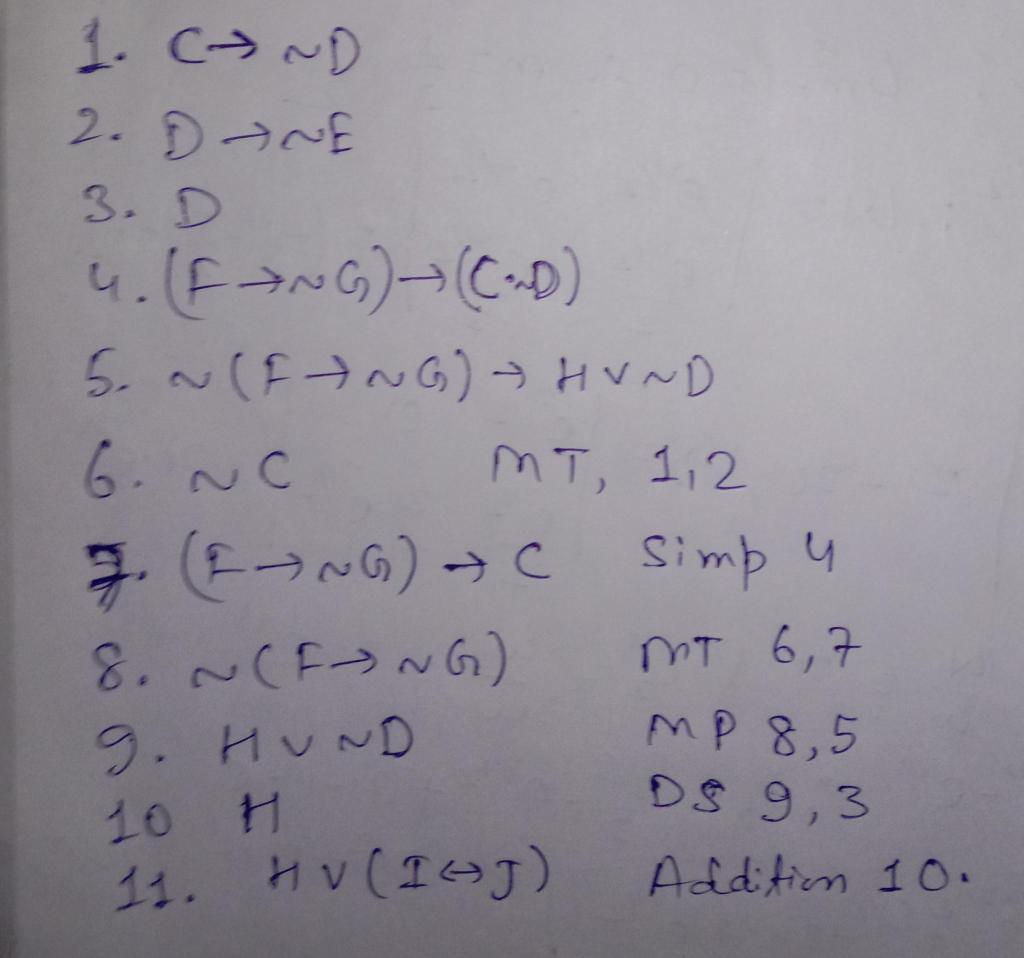 1. C→ ~D
2. D→~E
3. D
4. (F→~G)→(C·~D)
5. ~(F→~G)→ H∨~D
6. ~C MT, 1,2
7. (F→~G)→ C Simp 4
8. ~(F→~G) MT 6,7
9. H∨~D MP 8,5
10 H DS 9,3
11. H∨(I↔J) Addition 10.